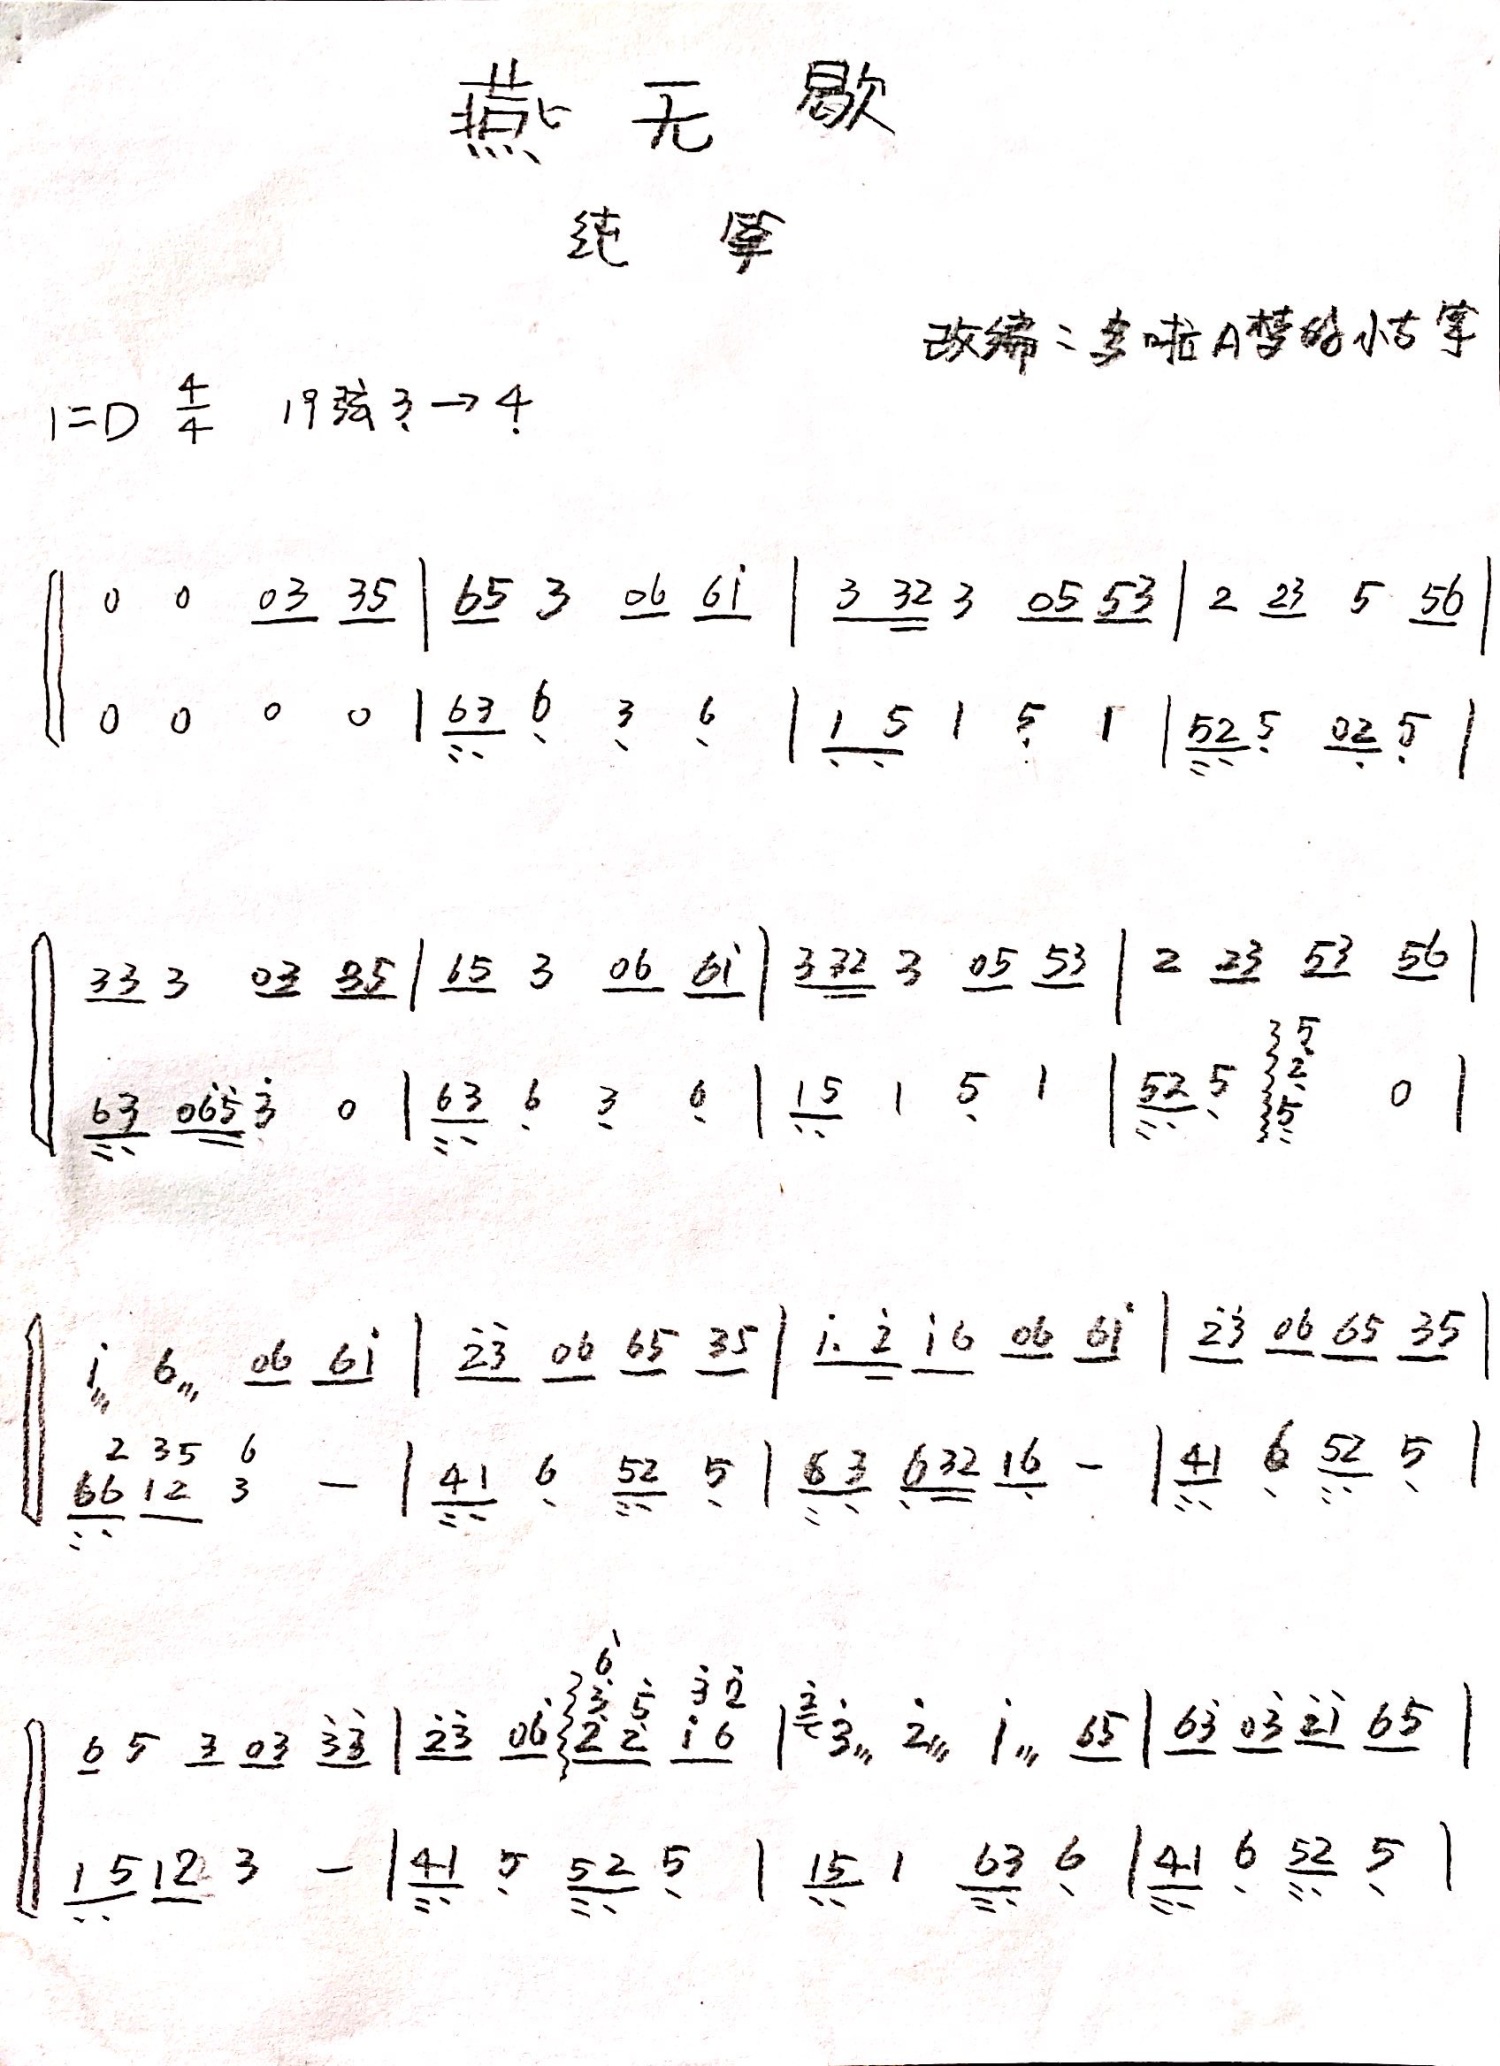 燕无歇
纯筝
改编：多啦A梦的小古筝
1=D 4/4 19弦3→4
0 0 03 35 | 65 3 06 61 | 3 32 3 05 53 | 2 23 5 56 |
0 0 0 0 | 63 6 3 6 | 1 5 1 5 1 | 52 5 02 5 |
33 3 03 35 | 65 3 06 61 | 3 32 3 05 53 | 2 23 53 56 |
63 065 3 0 | 63 6 3 6 | 15 1 5 1 | 52 5 35 2 5 0 |
1 6 06 61 | 23 06 65 35 | 1. 2 16 06 61 | 23 06 65 35 |
2 35 6
66 12 3 — | 41 6 52 5 | 63 632 16 - | 41 6 52 5 |
6 3 5 3 2
6 5 3 03 33 | 23 06 2 2 1 6 | 2 3 2 1 65 | 63 03 21 65 |
1 5 12 3 — | 41 5 52 5 | 15 1 63 6 | 41 6 52 5 |